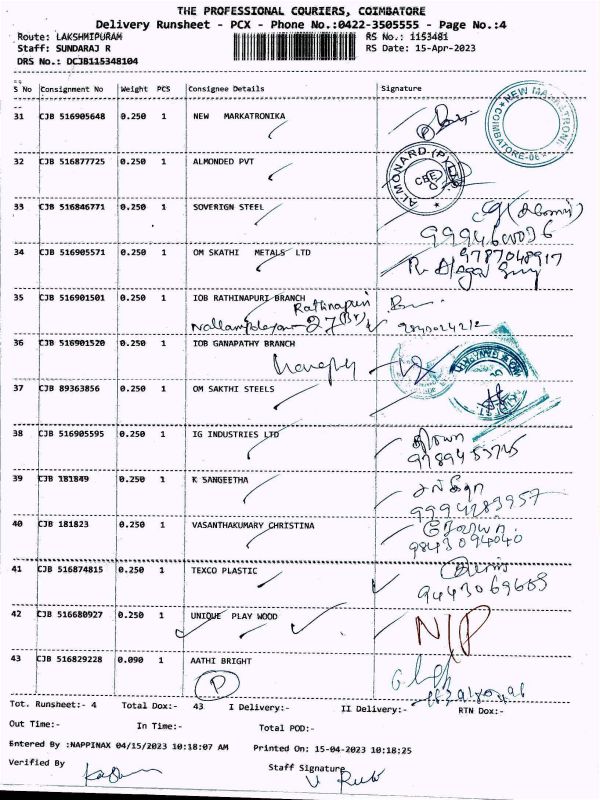 THE PROFESSIONAL COURIERS, COIMBATORE
Delivery Runsheet - PCX - Phone No.:0422-3505555 - Page No.:4
Route: LAKSHMIPURAM RS No.: 1153481
Staff: SUNDARAJ R RS Date: 15-Apr-2023
DRS No.: DCJB115348104
S No Consignment No Weight PCS Consignee Details Signature
31 CJB 516905648 0.250 1 NEW MARKATRONIKA
NEW MARKATRONIKA COIMBATORE
32 CJB 516877725 0.250 1 ALMONDED PVT
ALMONARD (P) LTD CBE
33 CJB 516846771 0.250 1 SOVERIGN STEEL
34 CJB 516905571 0.250 1 OM SKATHI METALS LTD
9787048917
35 CJB 516901501 0.250 1 IOB RATHINAPURI BRANCH
Rathinapuri
27 (Br)
36 CJB 516901520 0.250 1 IOB GANAPATHY BRANCH
37 CJB 89363856 0.250 1 OM SAKTHI STEELS
38 CJB 516905595 0.250 1 IG INDUSTRIES LTD
39 CJB 181849 0.250 1 K SANGEETHA
9994283957
40 CJB 181823 0.250 1 VASANTHAKUMARY CHRISTINA
9843094040
41 CJB 516874815 0.250 1 TEXCO PLASTIC
42 CJB 516680927 0.250 1 UNIQUE PLAY WOOD
N/P
43 CJB 516829228 0.090 1 AATHI BRIGHT
P
Tot. Runsheet:- 4 Total Dox:- 43 I Delivery:- II Delivery:- RTN Dox:-
Out Time:- In Time:- Total POD:-
Entered By :NAPPINAX 04/15/2023 10:18:07 AM Printed On: 15-04-2023 10:18:25
Verified By Staff Signature